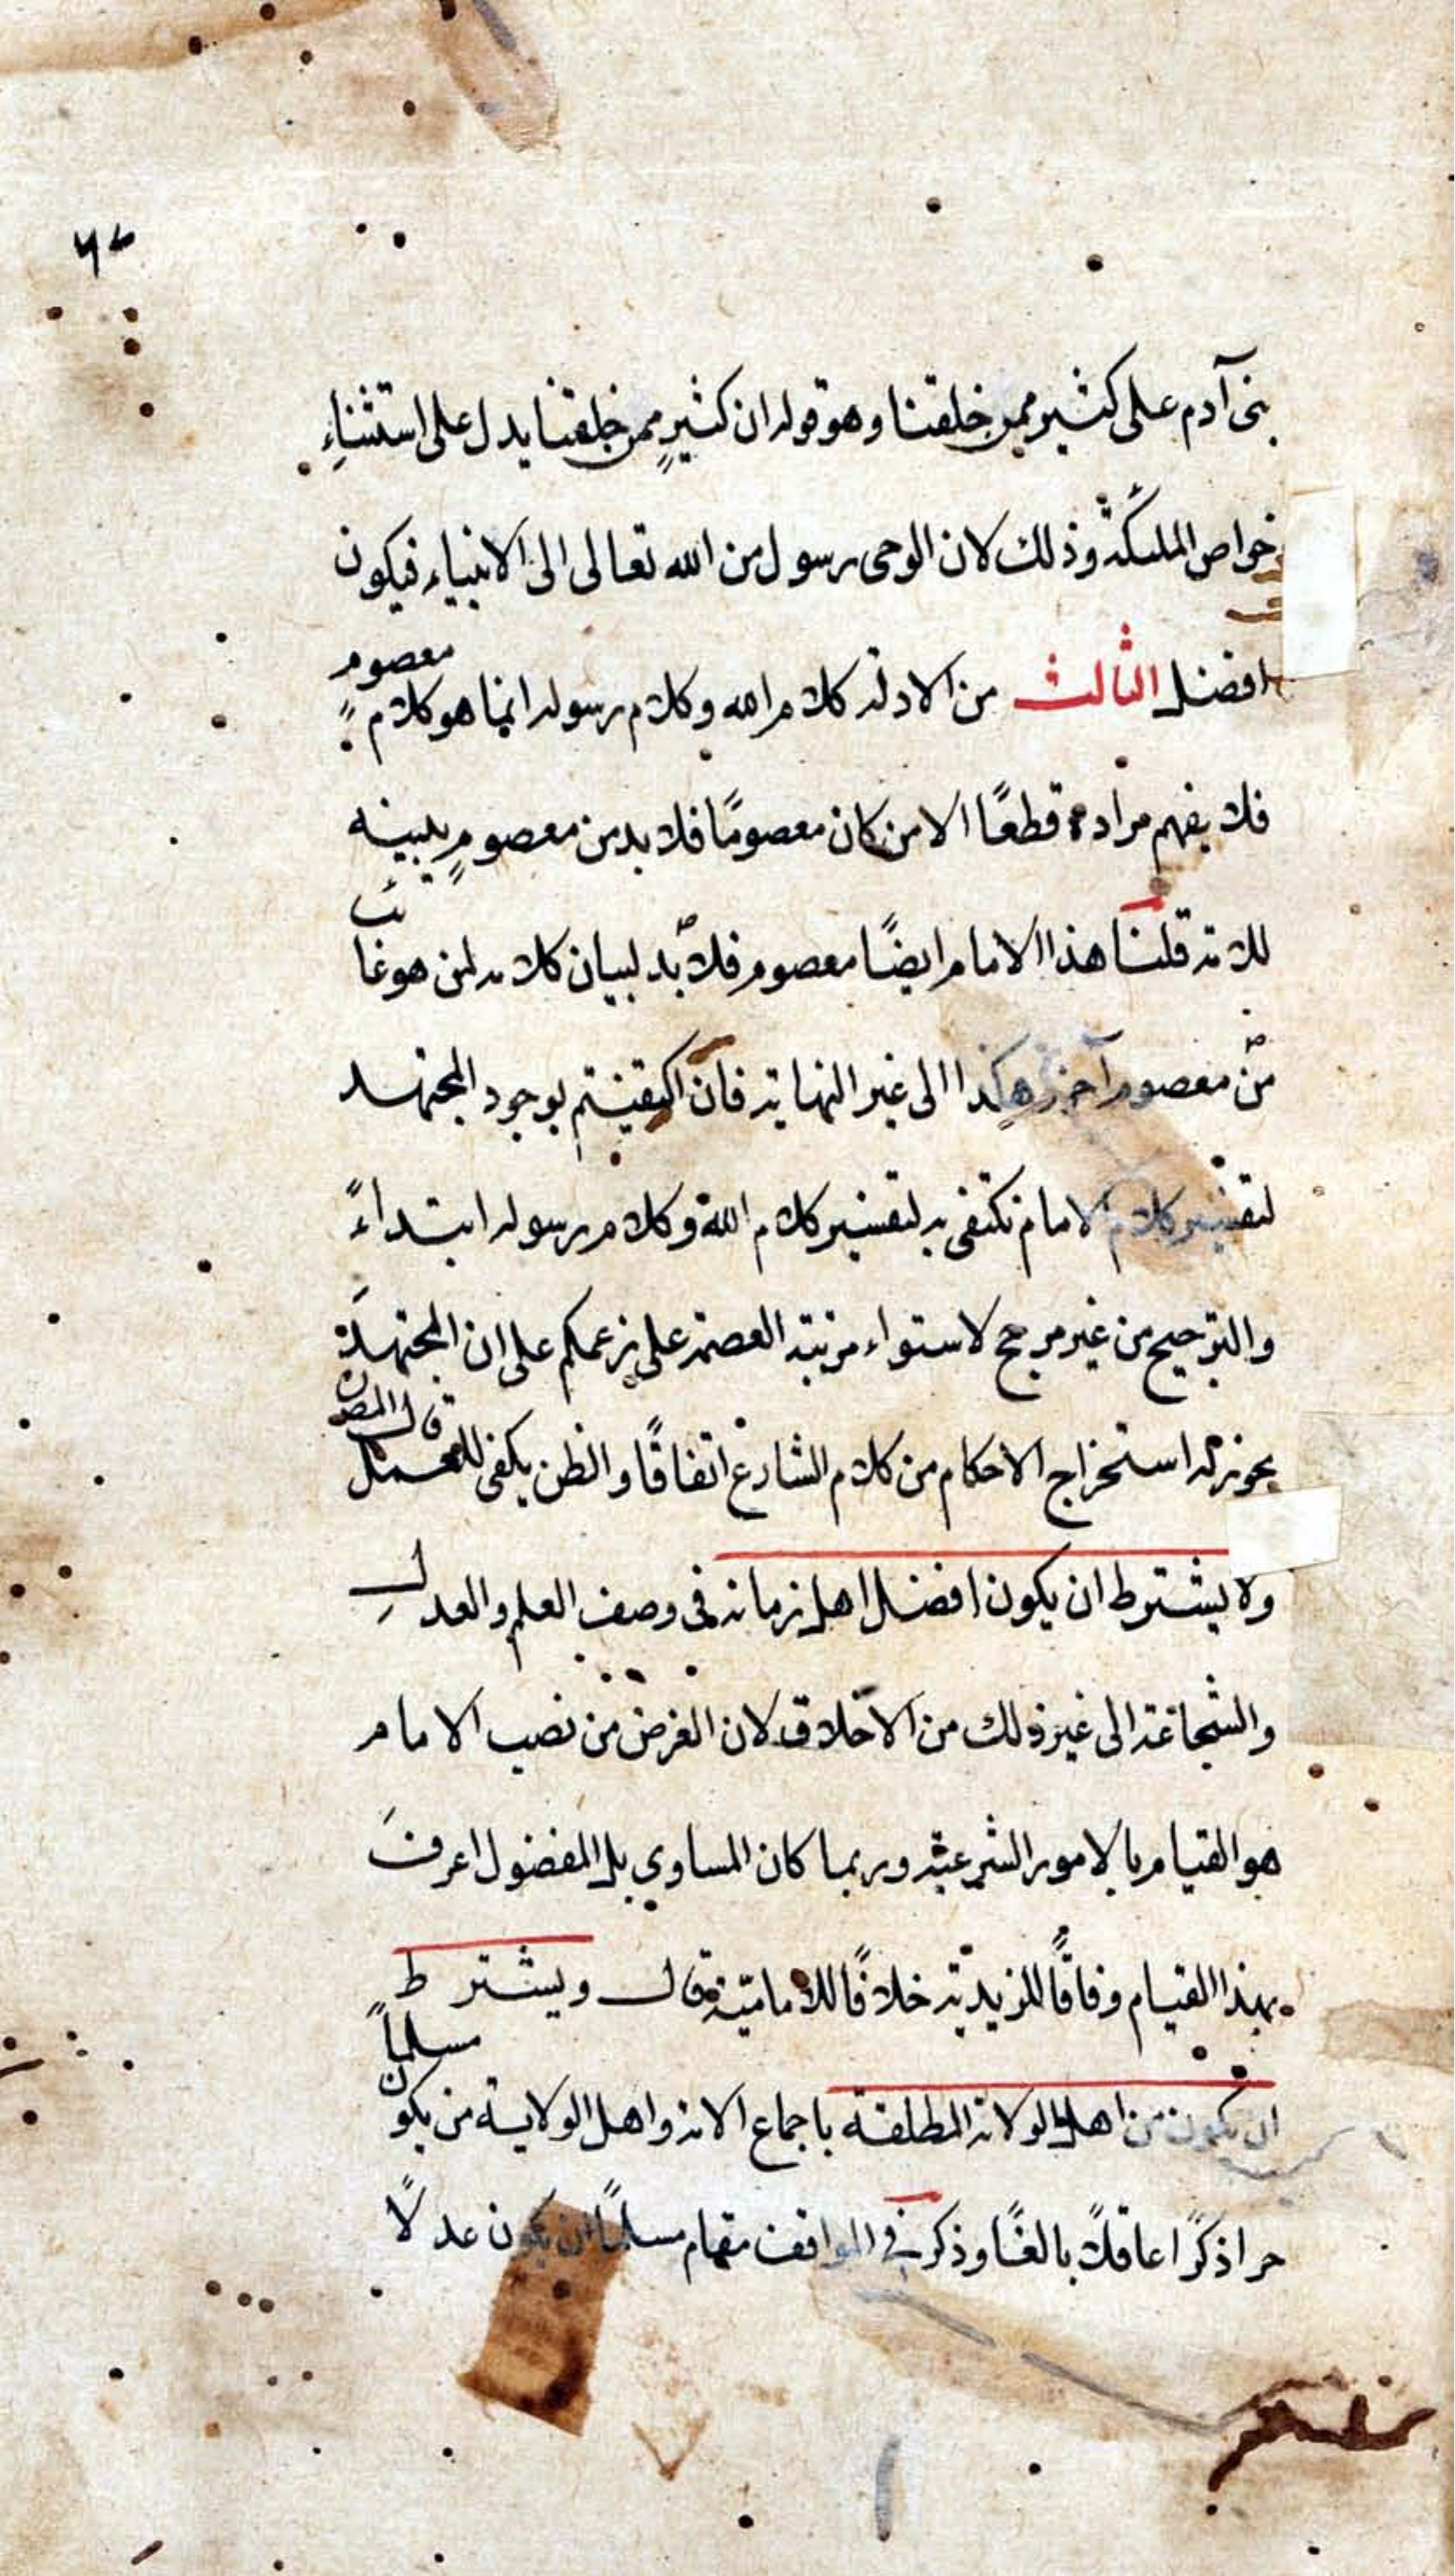 بنى آدم على كثير ممن خلقنا وهو قوله ان كثيرٍ ممن خلقنا يدل على استثناءِ
خواص الملئكة وذلك لان الوحى رسول من الله تعالى الى الانبياء فيكون
افضل الثالث من الادلة كلام الله وكلام رسوله انما هو كلام معصوم
فلا يفهم مراده قطعًا الا من كان معصومًا فلا بد من معصومٍ يبينه
للامة قلنا هذا الامام ايضًا معصوم فلا بد لبيان كلامه لمن هو غائب
من معصوم آخر هكذا الى غير النهاية فان اكتفيتم بوجود المجتهد
لتفسير كلام الامام نكتفى به لتفسير كلام الله وكلام رسوله ابتداءً
والترجيح من غير مرجح لاستواء مرتبة العصمة على زعمكم على ان المجتهد
يجوز له استخراج الاحكام من كلام الشارع اتفاقًا والظن يكفى للعمل قال المص
ولا يشترط ان يكون افضل اهل زمانه فى وصف العلم والعدل
والشجاعة الى غير ذلك من الاخلاق لان الغرض من نصب الامام
هو القيام بالامور الشرعية وربما كان المساوي بل المفضول اعرفَ
بهذا القيام وفاقًا للزيدية خلافًا للامامية قال ويشترط
ان يكون من اهل الولاية المطلقة باجماع الامة واهل الولاية من يكون مسلماً
حرا ذكرًا عاقلاً بالغًا وذكر في المواقف مقام مسلمًا ان يكون عدلًا